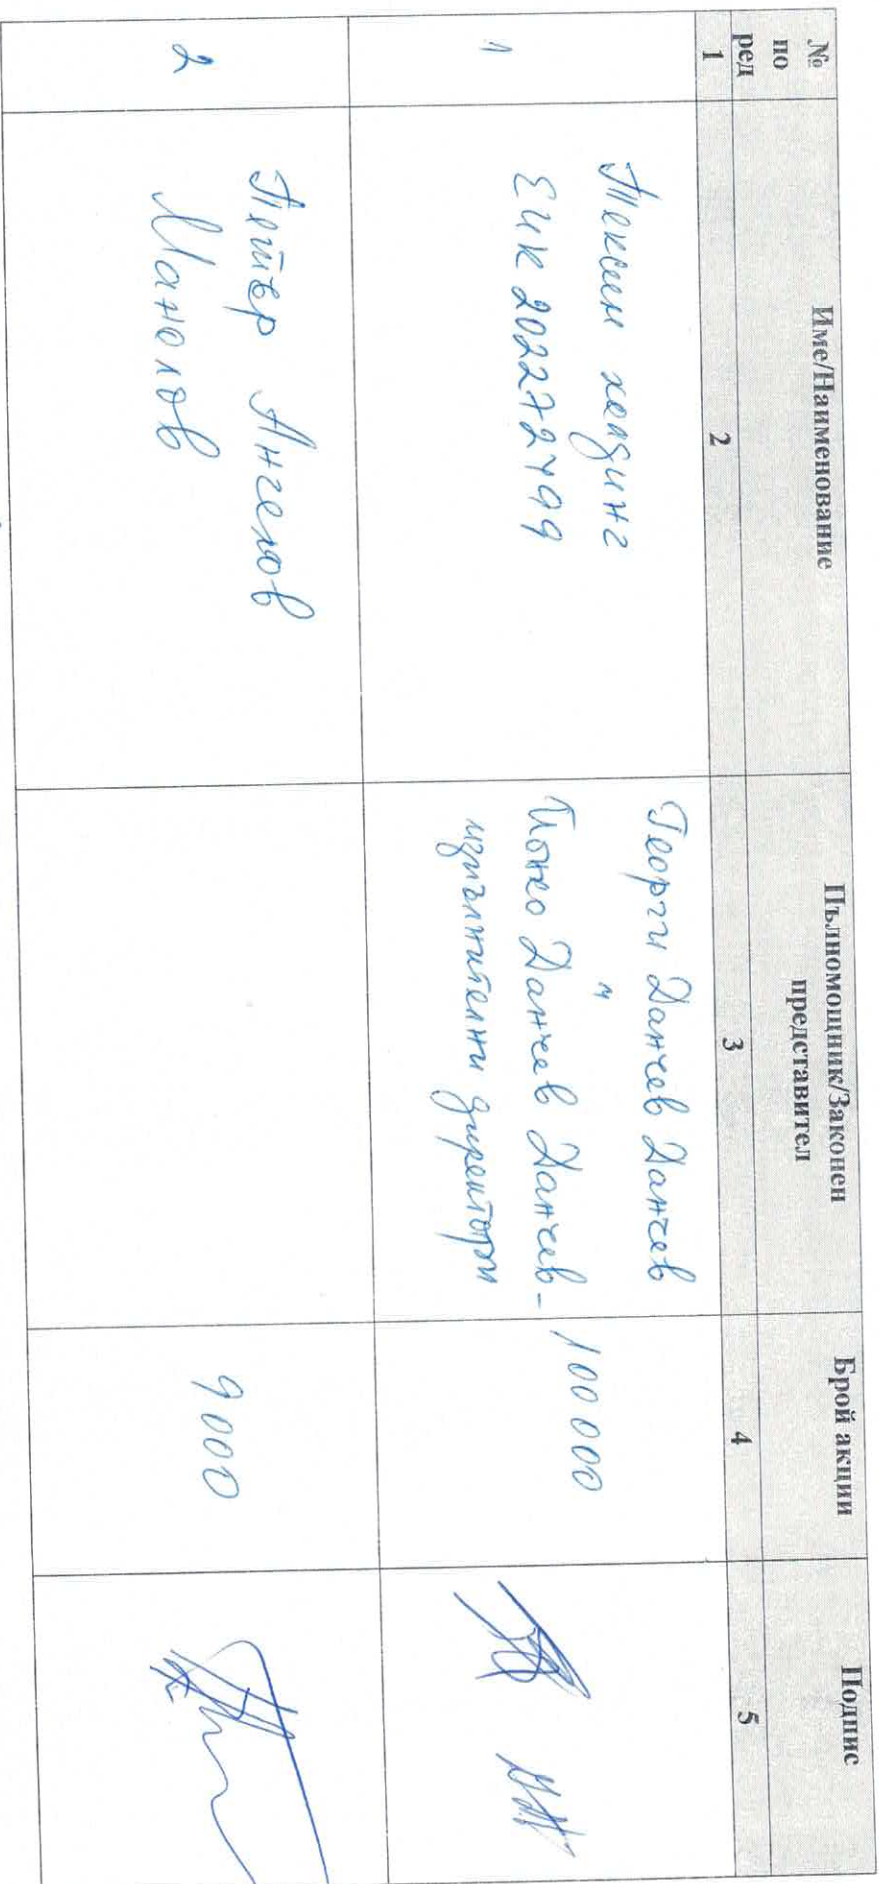 №
по
ред
Име/Наименование
Пълномощник/Законен
представител
Брой акции
Подпис
1
2
3
4
5
1
холдинг
ЕИК
Георги Данчев Данчев
и
Йонко Данчев Данчев-
изпълнителни директори
100 000
2
Петър Ангелов
Манолов
9 000